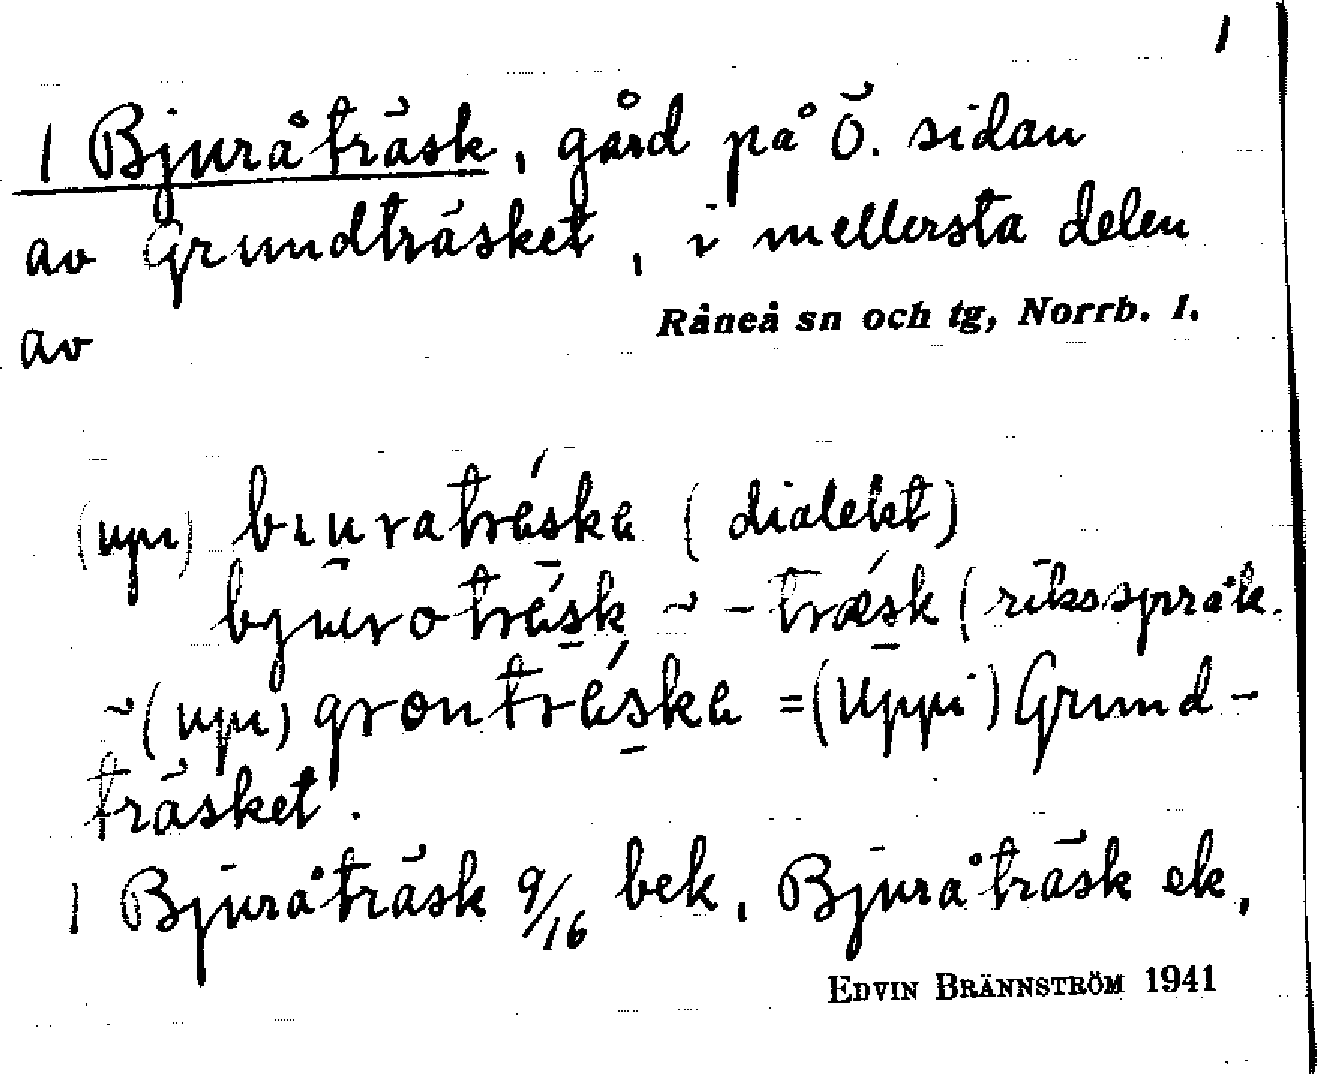 1
1 Bjuråträsk, gård på Ö. sidan
av Grundträsket, i mellersta delen
av Råneå sn och tg, Norrb. l.
(upi) biuraträska (dialekt)
bjuurotrésk ~ -træsk (riksspråk.
~ (upi) grontréska = (Uppi) Grund-
träsket.
1 Bjuråträsk 9/16 bek, Bjuråträsk ek,
EDVIN BRÄNNSTRÖM 1941